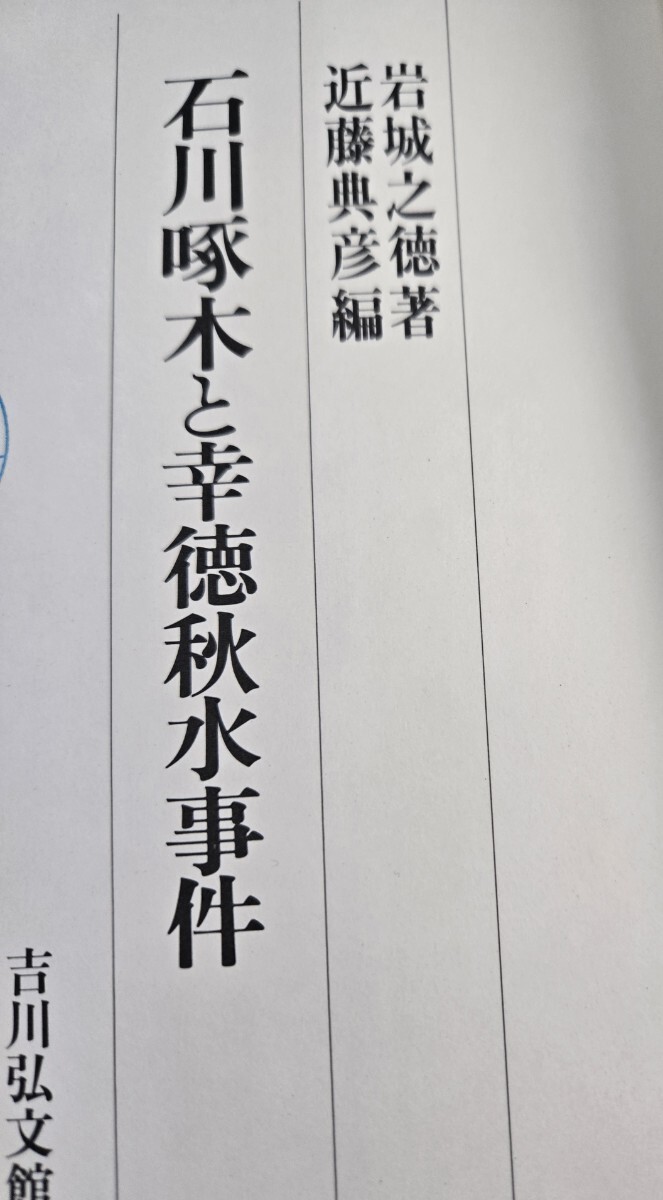 岩城之徳著
近藤典彦編
石川啄木と幸徳秋水事件
吉川弘文館